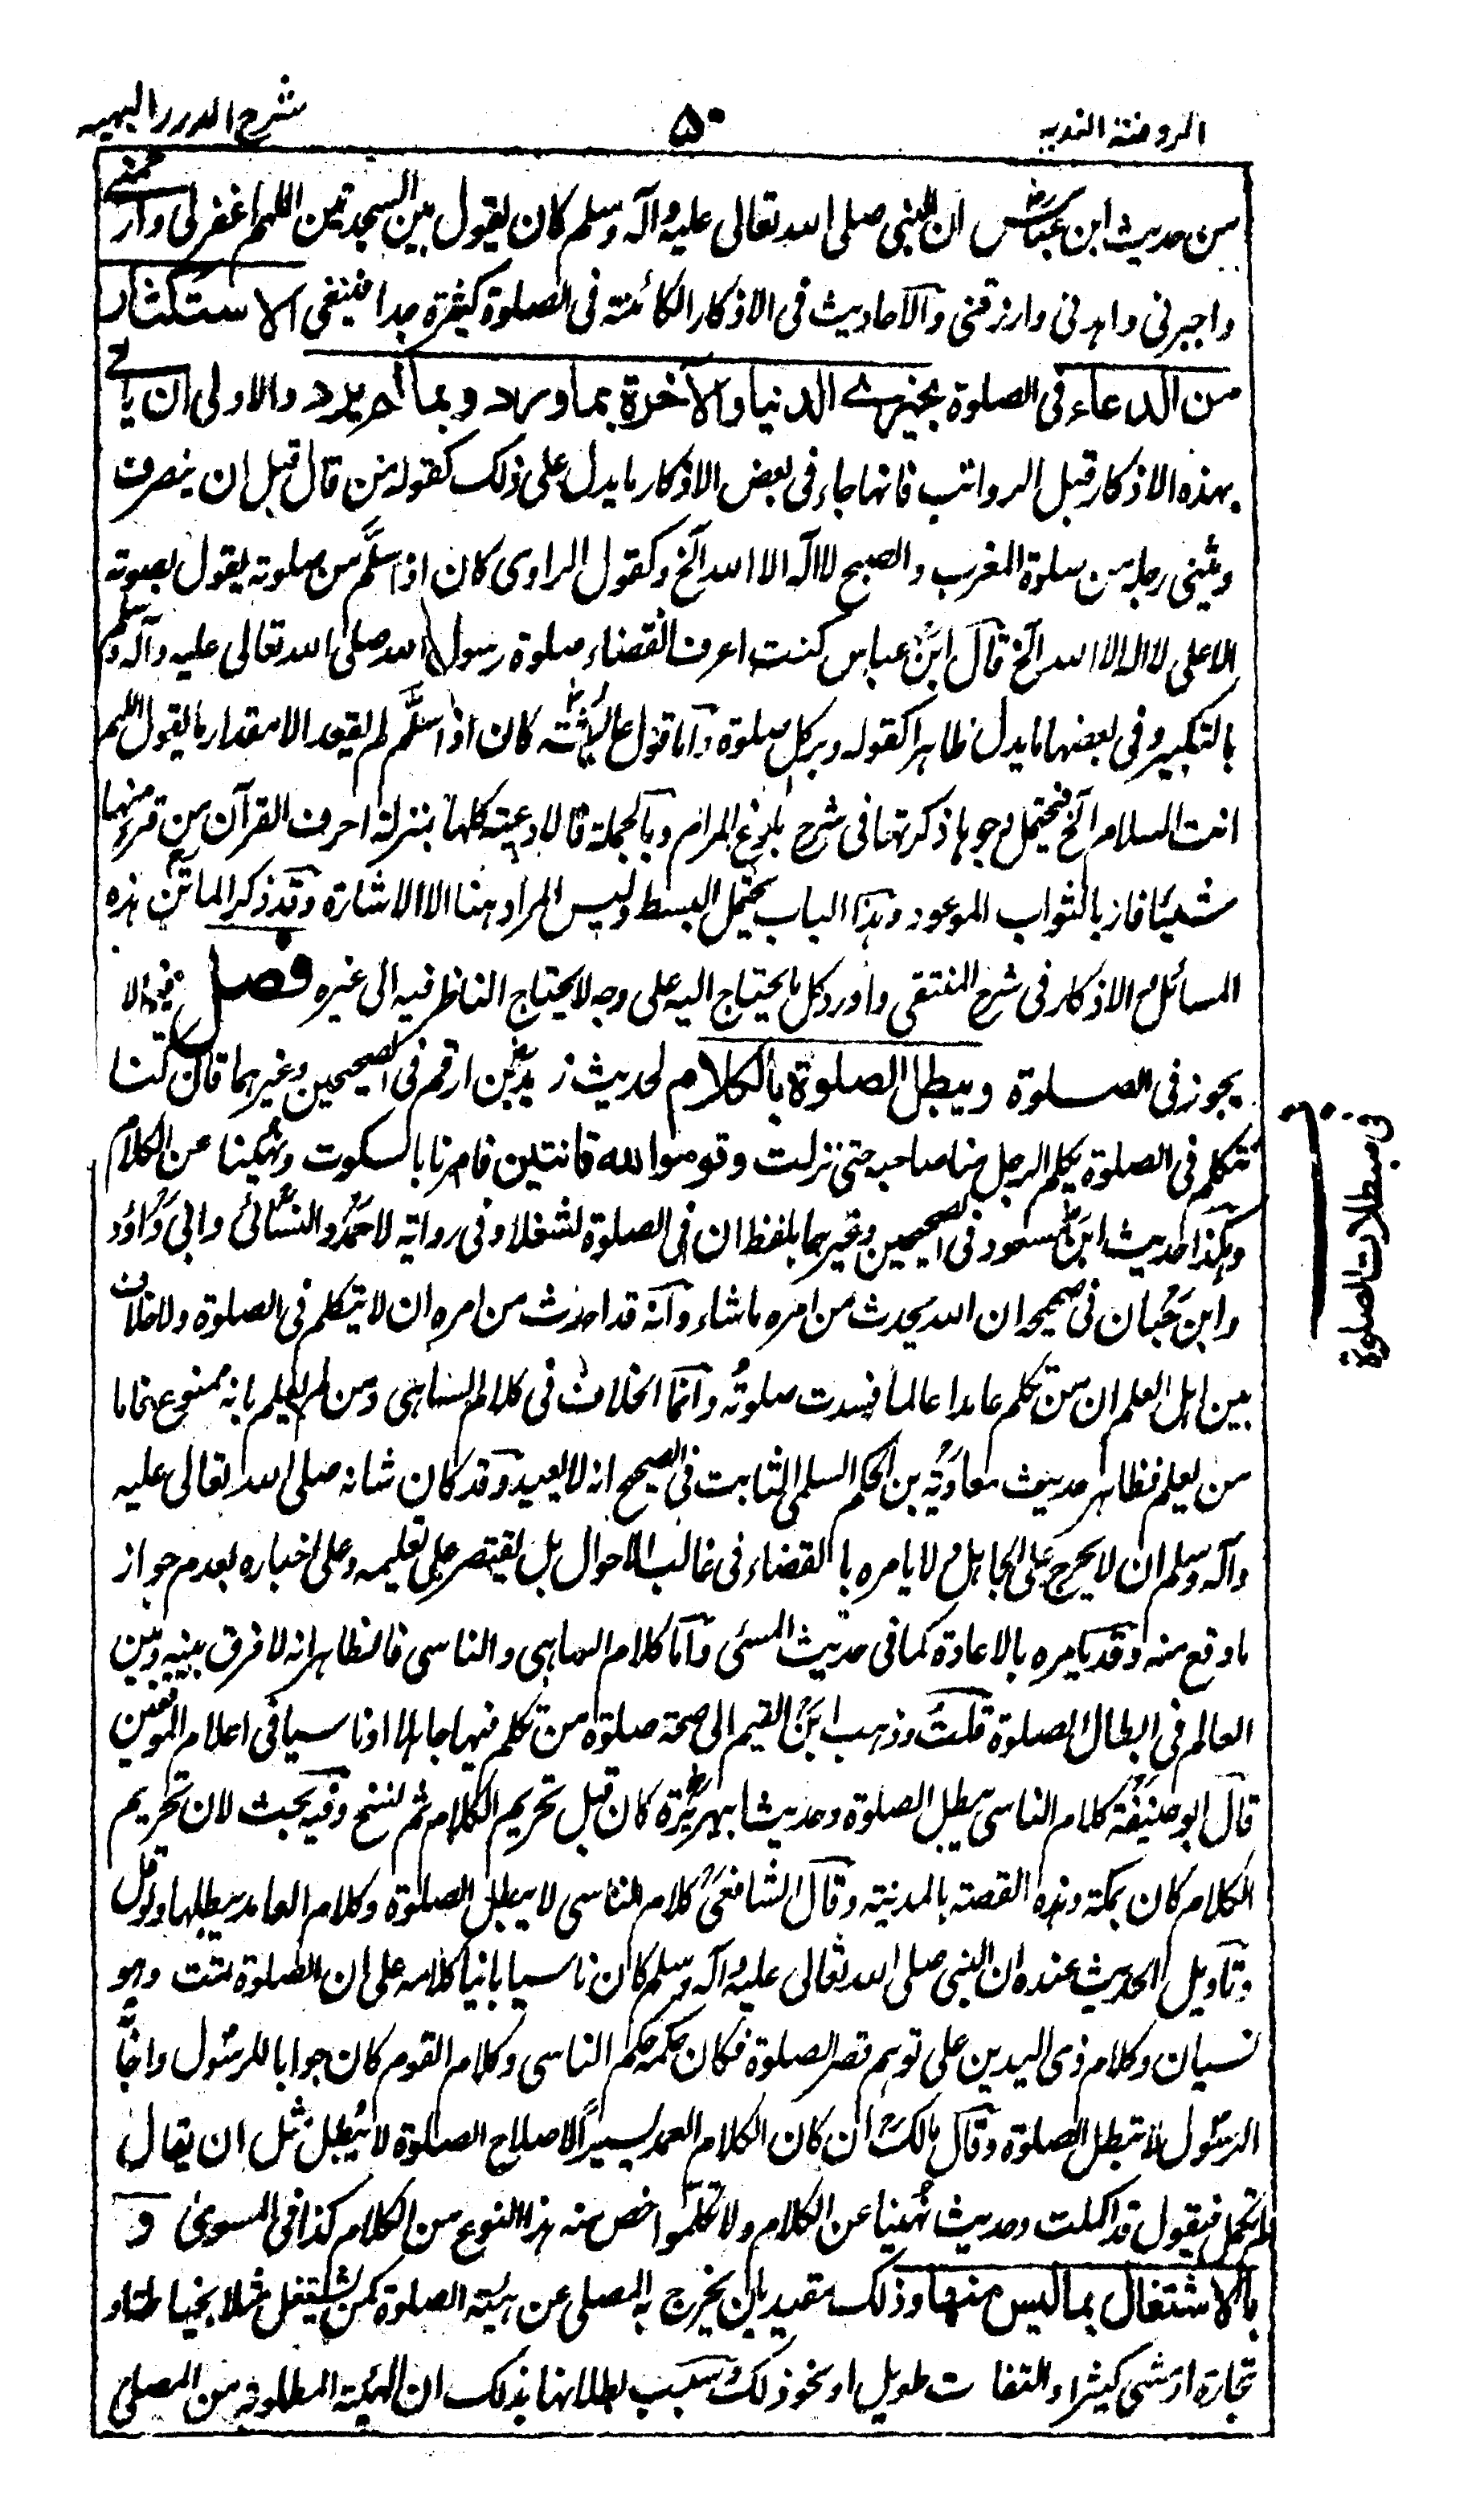 الروضة الندية
۵۰
شرح الدرر البهية
من حديث ابن عباس ان النبى صلى الله تعالى عليه وآله وسلم كان يقول بين السجدتين اللهم اغفرلى وارحمنى
واجبرنى واهدنى وارزقنى والاحاديث فى الاذكار الكائنة فى الصلوة كثيرة جدا فينبغى الاستكثار
من الدعاء فى الصلوة بخيرى الدنيا والآخرة بما ورد وبما لم يرد والاولى ان ياتى
بهذه الاذكار قبل الرواتب فانها جاء فى بعض الاذكار ما يدل على ذلك كقوله من قال قبل ان ينصرف
ويثنى رجله من صلوة المغرب والصبح لا اله الا الله الخ وكقول الراوى كان اذا سلم من صلوته يقول بصوته
الاعلى لا اله الا الله الخ قال ابن عباس كنت اعرف انقضاء صلوة رسول الله صلى الله تعالى عليه وآله وسلم
بالتكبير وفى بعضها ما يدل ظاهرا كقوله دبر كل صلوة واما قول عائشة كان اذا سلم لم يقعد الا مقدار ما يقول اللهم
انت السلام الخ فيحتمل وجوها ذكرتها فى شرح بلوغ المرام وبالجملة فالادعية كلها بمنزلة احرف القرآن من قرء منها
شيئا فاز بالثواب الموعود وهذا الباب يحتمل البسط وليس المراد هنا الا الاشارة وقد ذكر الماتن هذه
المسائل مع الاذكار فى شرح المنتقى واورد كل ما يحتاج اليه على وجه لا يحتاج الناظر فيه الى غيره فصل فيما لا
يجوز فى الصلوة ويبطل الصلوة بالكلام لحديث زيد بن ارقم فى الصحيحين وغيرهما قال كنا
نتكلم فى الصلوة يكلم الرجل منا صاحبه حتى نزلت وقوموا لله قانتين فامرنا بالسكوت ونهينا عن الكلام
وهكذا حديث ابن مسعود فى الصحيحين وغيرهما بلفظ ان فى الصلوة لشغلا وفى رواية لاحمد والنسائى وابى داؤد
وابن حبان فى صحيحه ان الله يحدث من امره ما شاء وانه قد احدث من امره ان لا يتكلم فى الصلوة ولا خلاف
بين اهل العلم ان من تكلم عامدا عالما فسدت صلوته وانما الخلاف فى كلام الساهى ومن لم يعلم بانه ممنوع فاما
من لم يعلم فظاهر حديث معاوية بن الحكم السلمى الثابت فى الصحيح انه لا يعيد وقد كان شانه صلى الله تعالى عليه
وآله وسلم ان لا يحرج على الجاهل ولا يامره بالقضاء فى غالب الاحوال بل يقتصر على تعليمه وعلى اخباره بعدم جواز
ما وقع منه وقد يامره بالاعادة كما فى حديث المسئ واما كلام الساهى والناسى فالظاهر انه لا فرق بينه وبين
العالم فى ابطال الصلوة قلت وذهب ابن القيم الى صحة صلوة من تكلم فيها جاهلا او ناسيا فى اعلام الموقعين
قال ابو حنيفة كلام الناسى يبطل الصلوة وحديث ابى هريرة كان قبل تحريم الكلام ثم نسخ وفيه بحث لان تحريم
الكلام كان بمكة وهذه القصة بالمدينة وقال الشافعى كلام الناسى لا يبطل الصلوة وكلام العامد يبطلها ولو قل
وتاويل الحديث عنده ان النبى صلى الله تعالى عليه وآله وسلم كان ناسيا بانيا كلامه على ان الصلوة تمت وهو
نسيان وكلام ذى اليدين على توهم قصر الصلوة فكان حكمه حكم الناسى وكلام القوم كان جوابا للرسول واجابة
الرسول لا تبطل الصلوة وقال مالك ان كان الكلام العمد يسيرا لاصلاح الصلوة لا يبطل مثل ان يقال
لم تكمل فيقول قد اكملت وحديث نهينا عن الكلام ولا تكلموا خص منه هذا النوع من الكلام كذا فى المسوى و
بالاشتغال بما ليس منها وذلك مقيد بان يخرج به المصلى عن هيئة الصلوة كمن يشتغل مثلا بخياطة او
تجارة او مشى كثير او التفات طويل او نحو ذلك وسبب بطلانها بذلك ان الهيئة المطلوبة من المصلى
ف مبطلات الصلوة